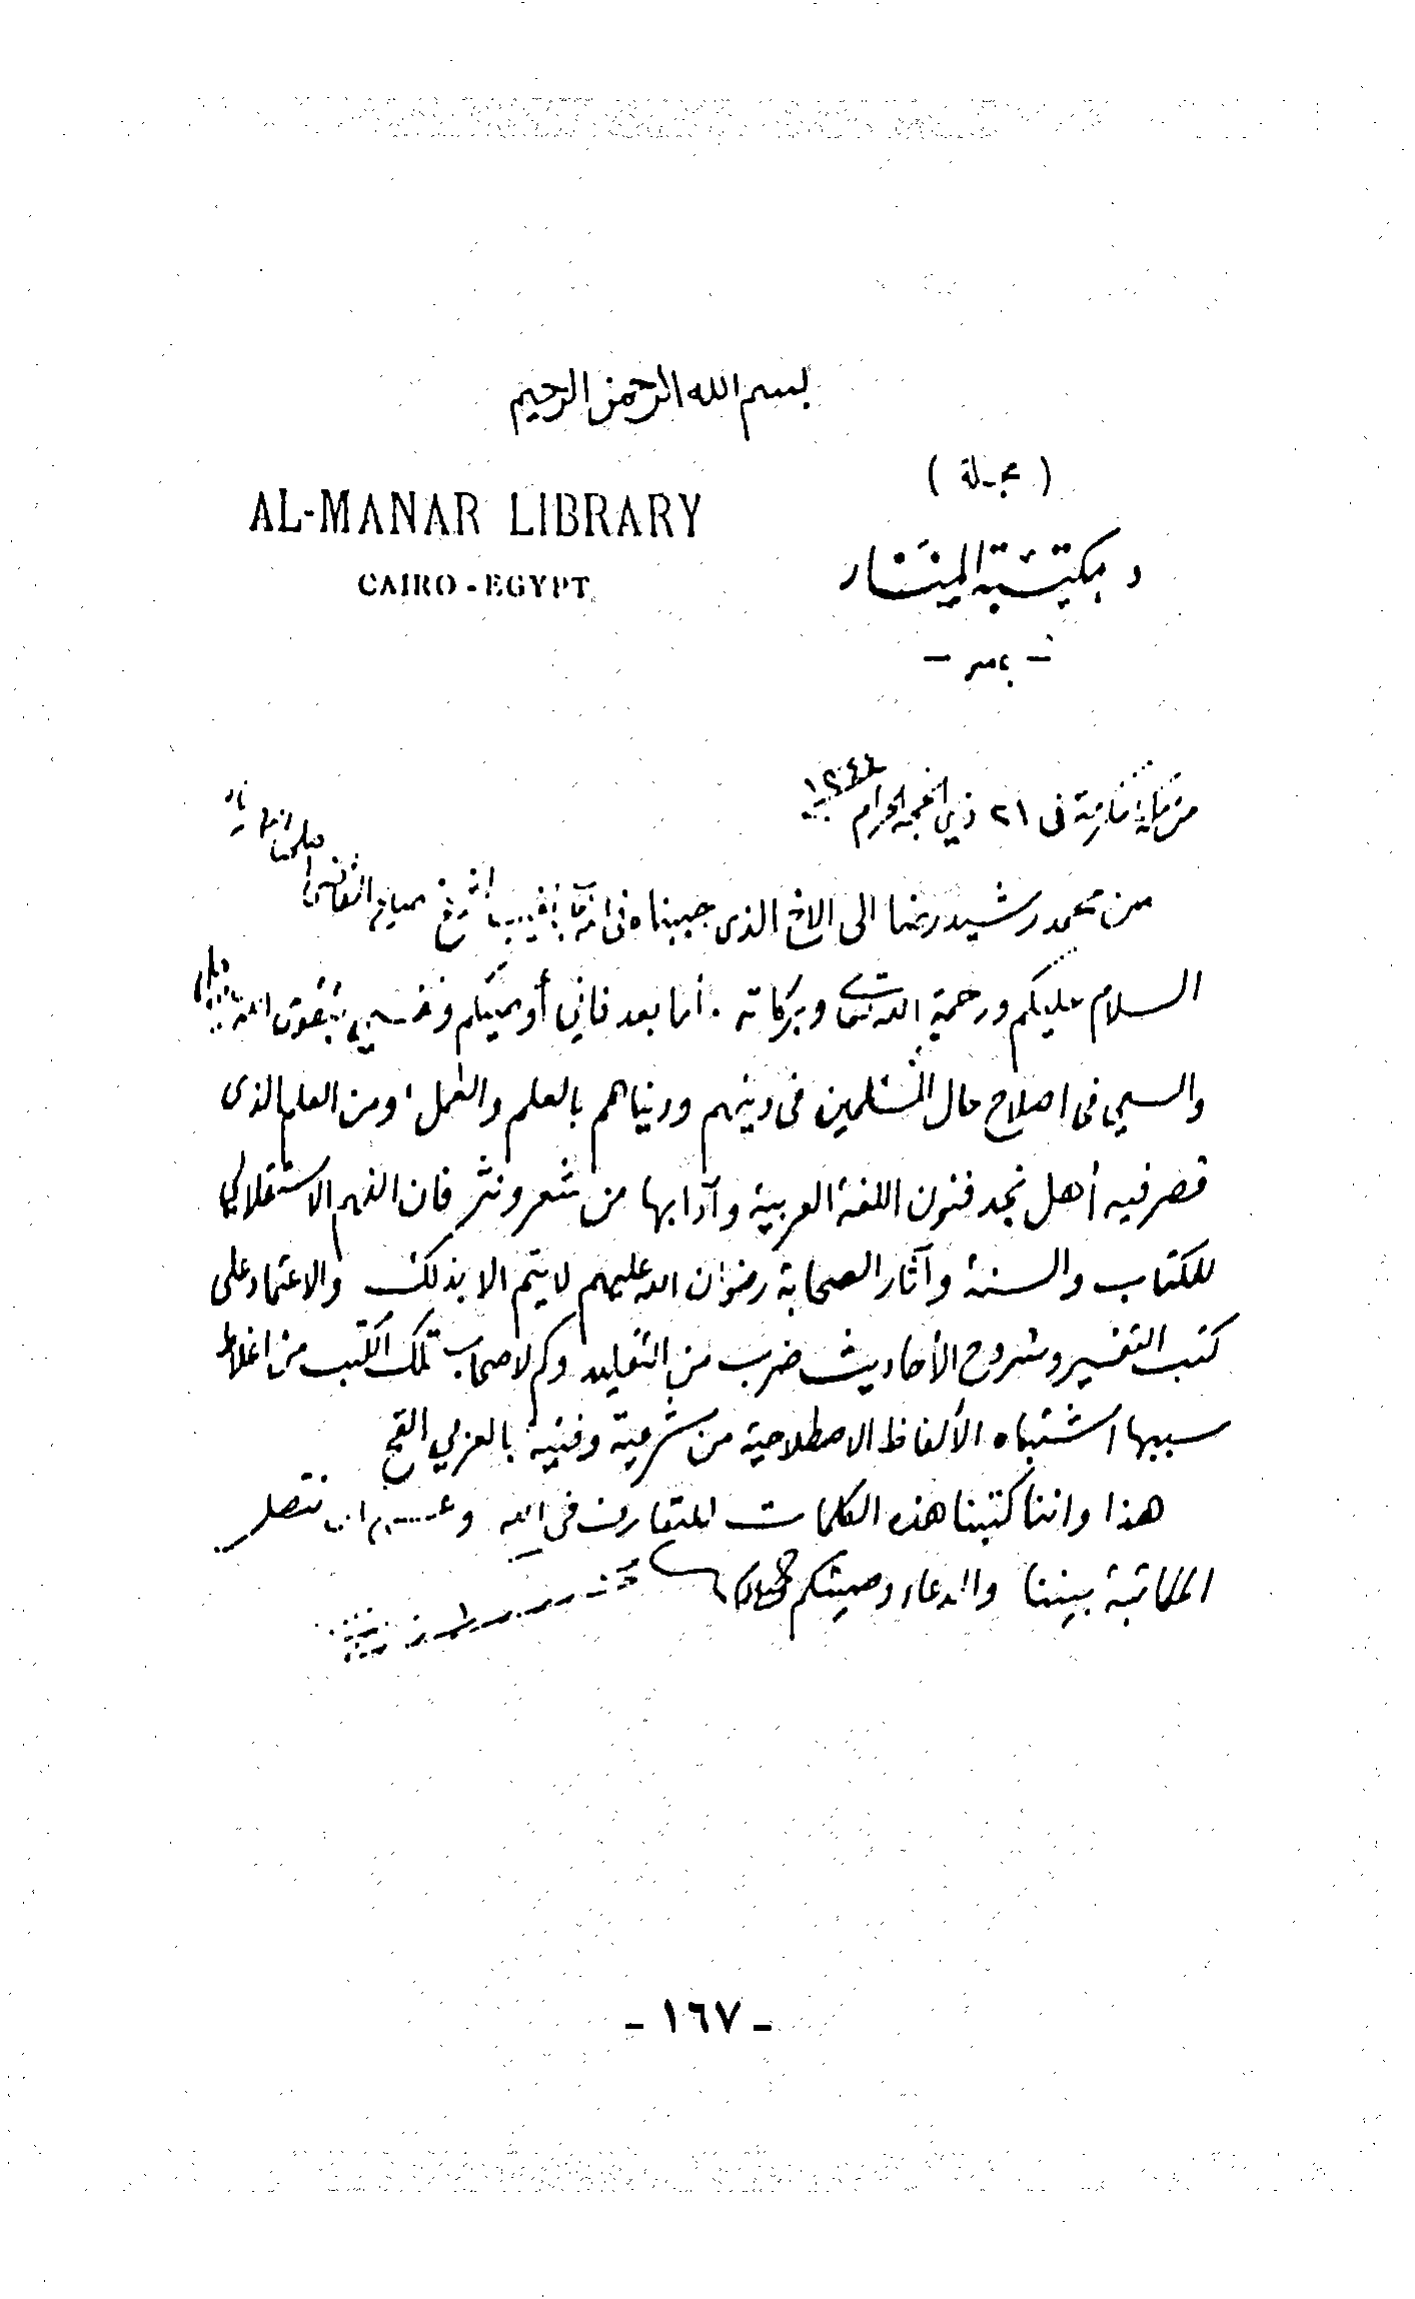 بسم الله الرحمن الرحيم
( مجلة )
AL-MANAR LIBRARY
CAIRO - EGYPT
ومكتبة المنار
- بمصر -
في ٢١ ذي الحجة الحرام ١٣٤٤
من محمد رشيد رضا الى الاخ الذي حبيناه في
السلام عليكم ورحمة الله تعالى وبركاته . أما بعد فاني أوصيكم ونفسي بتقوى الله
والسعي في اصلاح حال المسلمين في دينهم ودنياهم بالعلم والعمل ، ومن العلم الذي
قصر فيه أهل نجد فنون اللغة العربية وآدابها من شعر ونثر فان الفهم الاستقلالي
للكتاب والسنة وآثار الصحابة رضوان الله عليهم لا يتم الا بذلك والاعتماد على
كتب التفسير وشروح الأحاديث ضرب من التقليد وكم لاصحاب تلك الكتب من اغلاط
سببها اشتباه الألفاظ الاصطلاحية من شرعية وفنية بالعربي القح
هذا واننا كتبنا هذه الكلمات للتعارف في الله وعسى ان تتصل
المكاتبة بيننا والدعاء وصيتكم
- ١٦٧ -